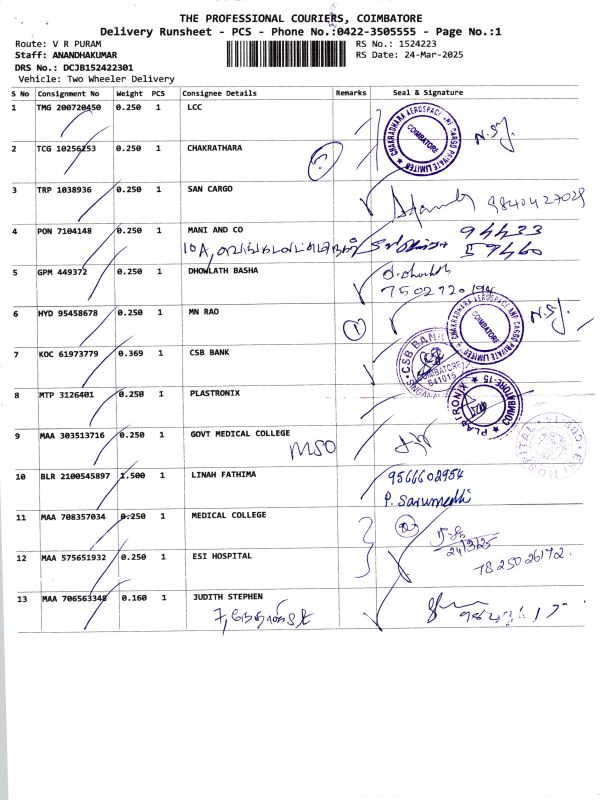 THE PROFESSIONAL COURIERS, COIMBATORE
Delivery Runsheet - PCS - Phone No.:0422-3505555 - Page No.:1
Route: V R PURAM RS No.: 1524223
Staff: ANANDHAKUMAR RS Date: 24-Mar-2025
DRS No.: DCJB152422301
Vehicle: Two Wheeler Delivery
S No Consignment No Weight PCS Consignee Details Remarks Seal & Signature
1 TMG 200720450 0.250 1 LCC
CHAKRADHARA AEROSPACE AND CARGO PRIVATE LIMITED COIMBATORE
2 TCG 10256253 0.250 1 CHAKRATHARA
3 TRP 1038936 0.250 1 SAN CARGO
9840427029
4 PON 7104148 0.250 1 MANI AND CO
94433
10A, 57460
5 GPM 449372 0.250 1 DHOWLATH BASHA
6 HYD 95458678 0.250 1 MN RAO
CHAKRADHARA AEROSPACE AND CARGO PRIVATE LIMITED COIMBATORE
7 KOC 61973779 0.369 1 CSB BANK
CSB BANK COIMBATORE 641015
8 MTP 3126401 0.250 1 PLASTRONIX
PLASTRONIX COIMBATORE-15
9 MAA 303513716 0.250 1 GOVT MEDICAL COLLEGE
MSO
10 BLR 2100545897 1.500 1 LINAH FATHIMA 9566602954
11 MAA 708357034 0.250 1 MEDICAL COLLEGE
24/3/25
12 MAA 575651932 0.250 1 ESI HOSPITAL 7825026172.
13 MAA 706563348 0.160 1 JUDITH STEPHEN